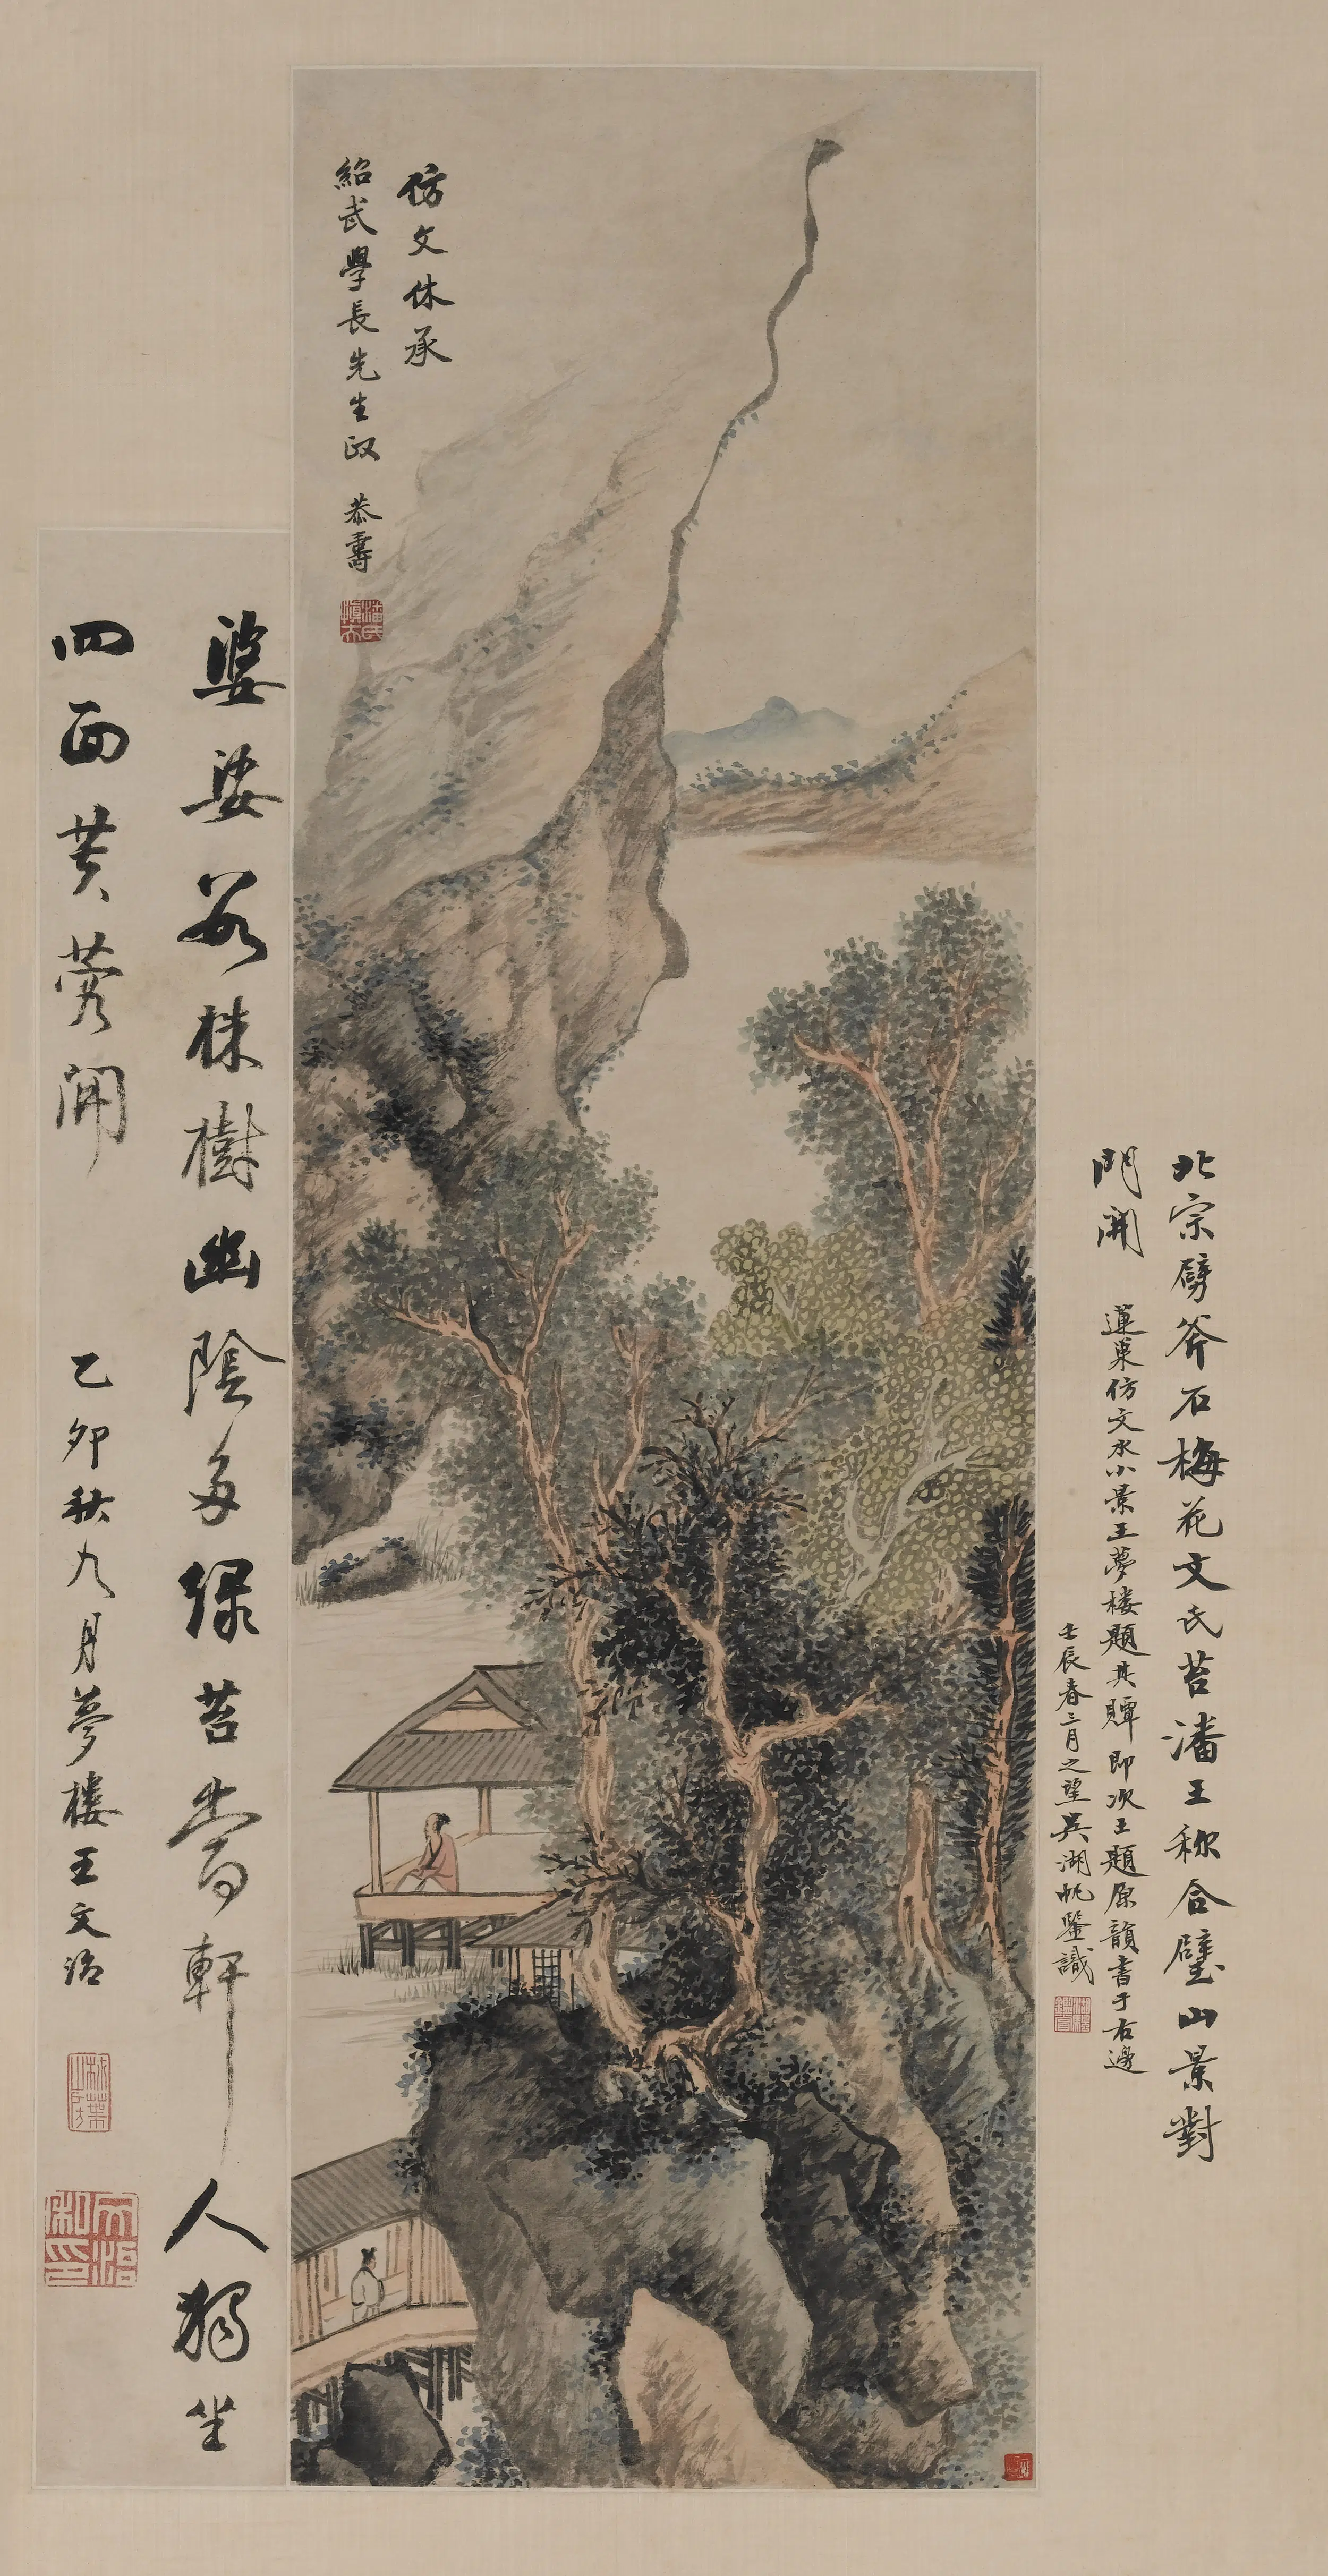 仿文休承
紹武學長先生政 恭壽
潘氏慎夫
婆娑數株樹幽陰多綠苔當軒人獨坐
四面芙蓉開 乙卯秋九月夢樓王文治
文治私印
北宗劈斧石梅花文氏苔潘王称合璧山景對
門開 蓮巢仿文水小景王夢樓題其贉即次王題原韻書于右邊
壬辰春三月之望吳湖帆鑒識